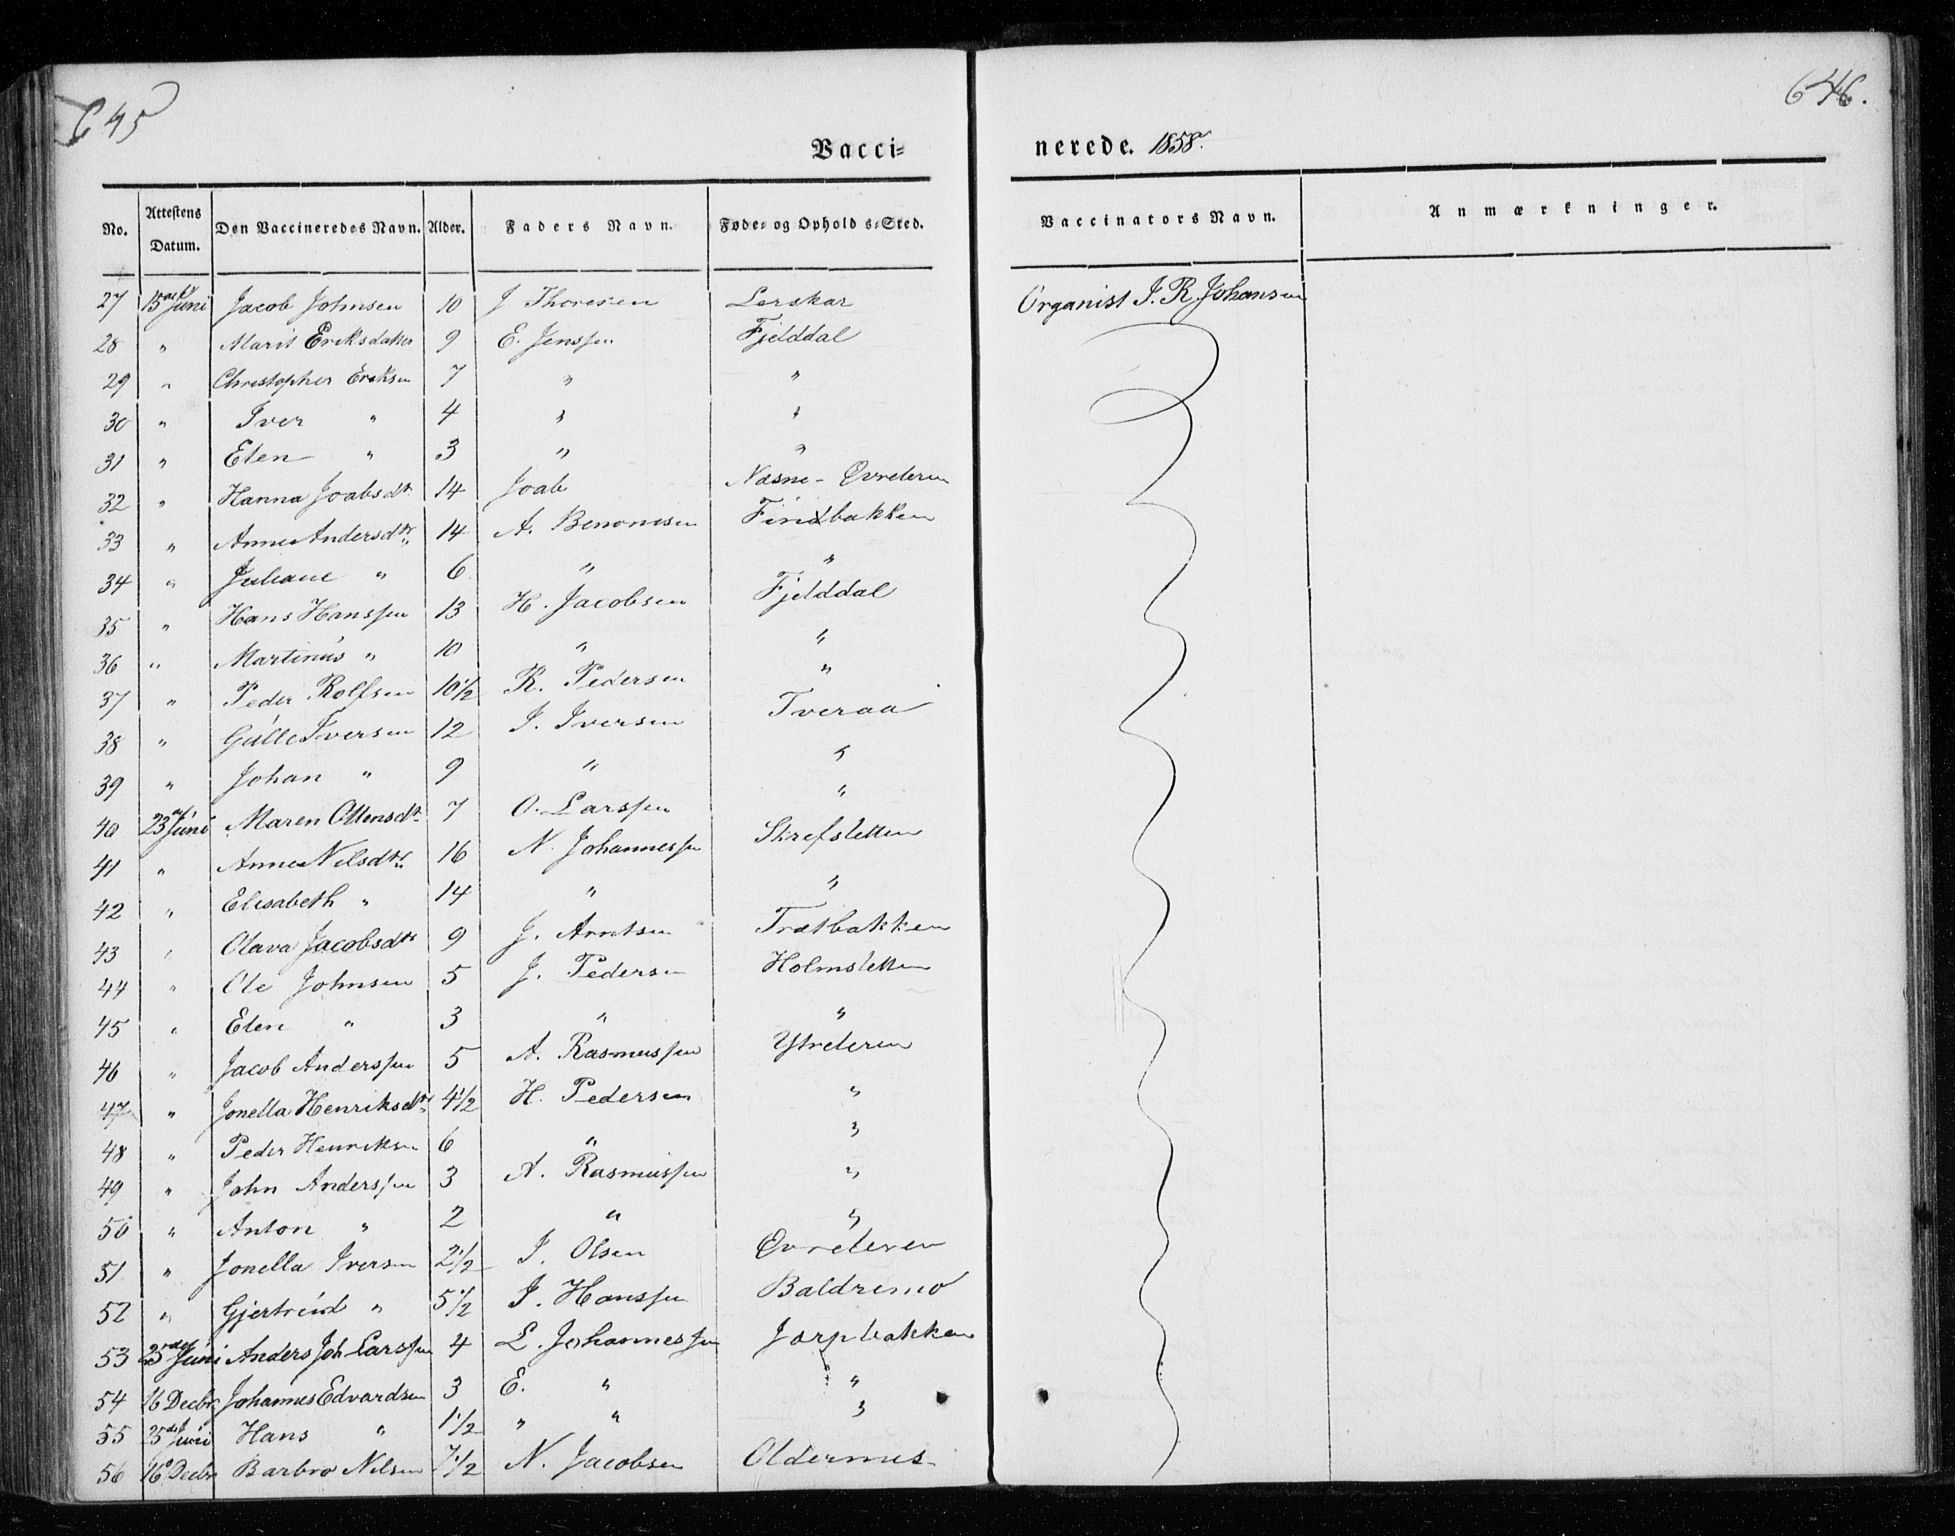 645
646.
Vacci-
nerede. 1858.
No. | Attestens Datum. | Den Vaccineredes Navn. | Alder. | Faders Navn. | Føde- og Opholds-Sted. | Vaccinators Navn. | Anmærkninger.
27 | 15de Juni | Jacob Johnsen | 10 | J Thoresen | Lerskar | Organist J. R. Johansen
28 | " | Marit Eriksdatter | 9 | E. Jenssen | Fjelddal
29 | " | Christopher Eriksen | 7 | " | "
30 | " | Iver " | 4 | " | "
31 | " | Elen " | 3 | " | "
32 | " | Hanna Joabsdtr | 14 | Joab | Næsne- Øvreleren
33 | " | Anne Andersdtr. | 14 | A. Benonesen | Findbakken
34 | " | Juliane " | 6 | " | "
35 | " | Hans Hanssen | 13 | H. Jacobsen | Fjelddal
36 | " | Martinus " | 10 | " | "
37 | " | Peder Rolfsen | 10 1/2 | R. Pedersen | "
38 | " | Gulle Iversen | 12 | I. Iversen | Tveraa
39 | " | Johan " | 9 | " | "
40 | 23de Juni | Maren Ottensdtr. | 7 | O. Larssen | "
41 | " | Anne Nilsdtr. | 16 | N. Johannessen | Strefsletten
42 | " | Elisabeth " | 14 | " | "
43 | " | Olava Jacobsdtr | 9 | J. Arntsen | Trætbakken
44 | " | Ole Johnsen | 5 | J. Pedersen | Holmsletten
45 | " | Elen " | 3 | " | "
46 | " | Jacob Anderssen | 5 | A. Rasmussen | Ytreleren
47 | " | Jonella Henriksdtr. | 4 1/2 | H. Pedersen | "
48 | " | Peder Henriksen | 6 | " | "
49 | " | John Anderssen | 3 | A. Rasmussen | "
50 | " | Anton " | 2 | " | "
51 | " | Jonella Iversen | 2 1/2 | I. Olsen | Øvreleren
52 | " | Gjertrud " | 5 1/2 | I. Hanssen | Baldremo
53 | 25de Juni | Anders Joh Larssen | 4 | L. Johannessen | Jørpbakken
54 | 16 Decbr | Johannes Edvardsen | 3 | E. " | "
55 | 25de Juni | Hans " | 1 1/2 | " " | "
56 | 16 Decbr | Barbro Nilsen | 7 1/2 | N. Jacobsen | Oldernæs